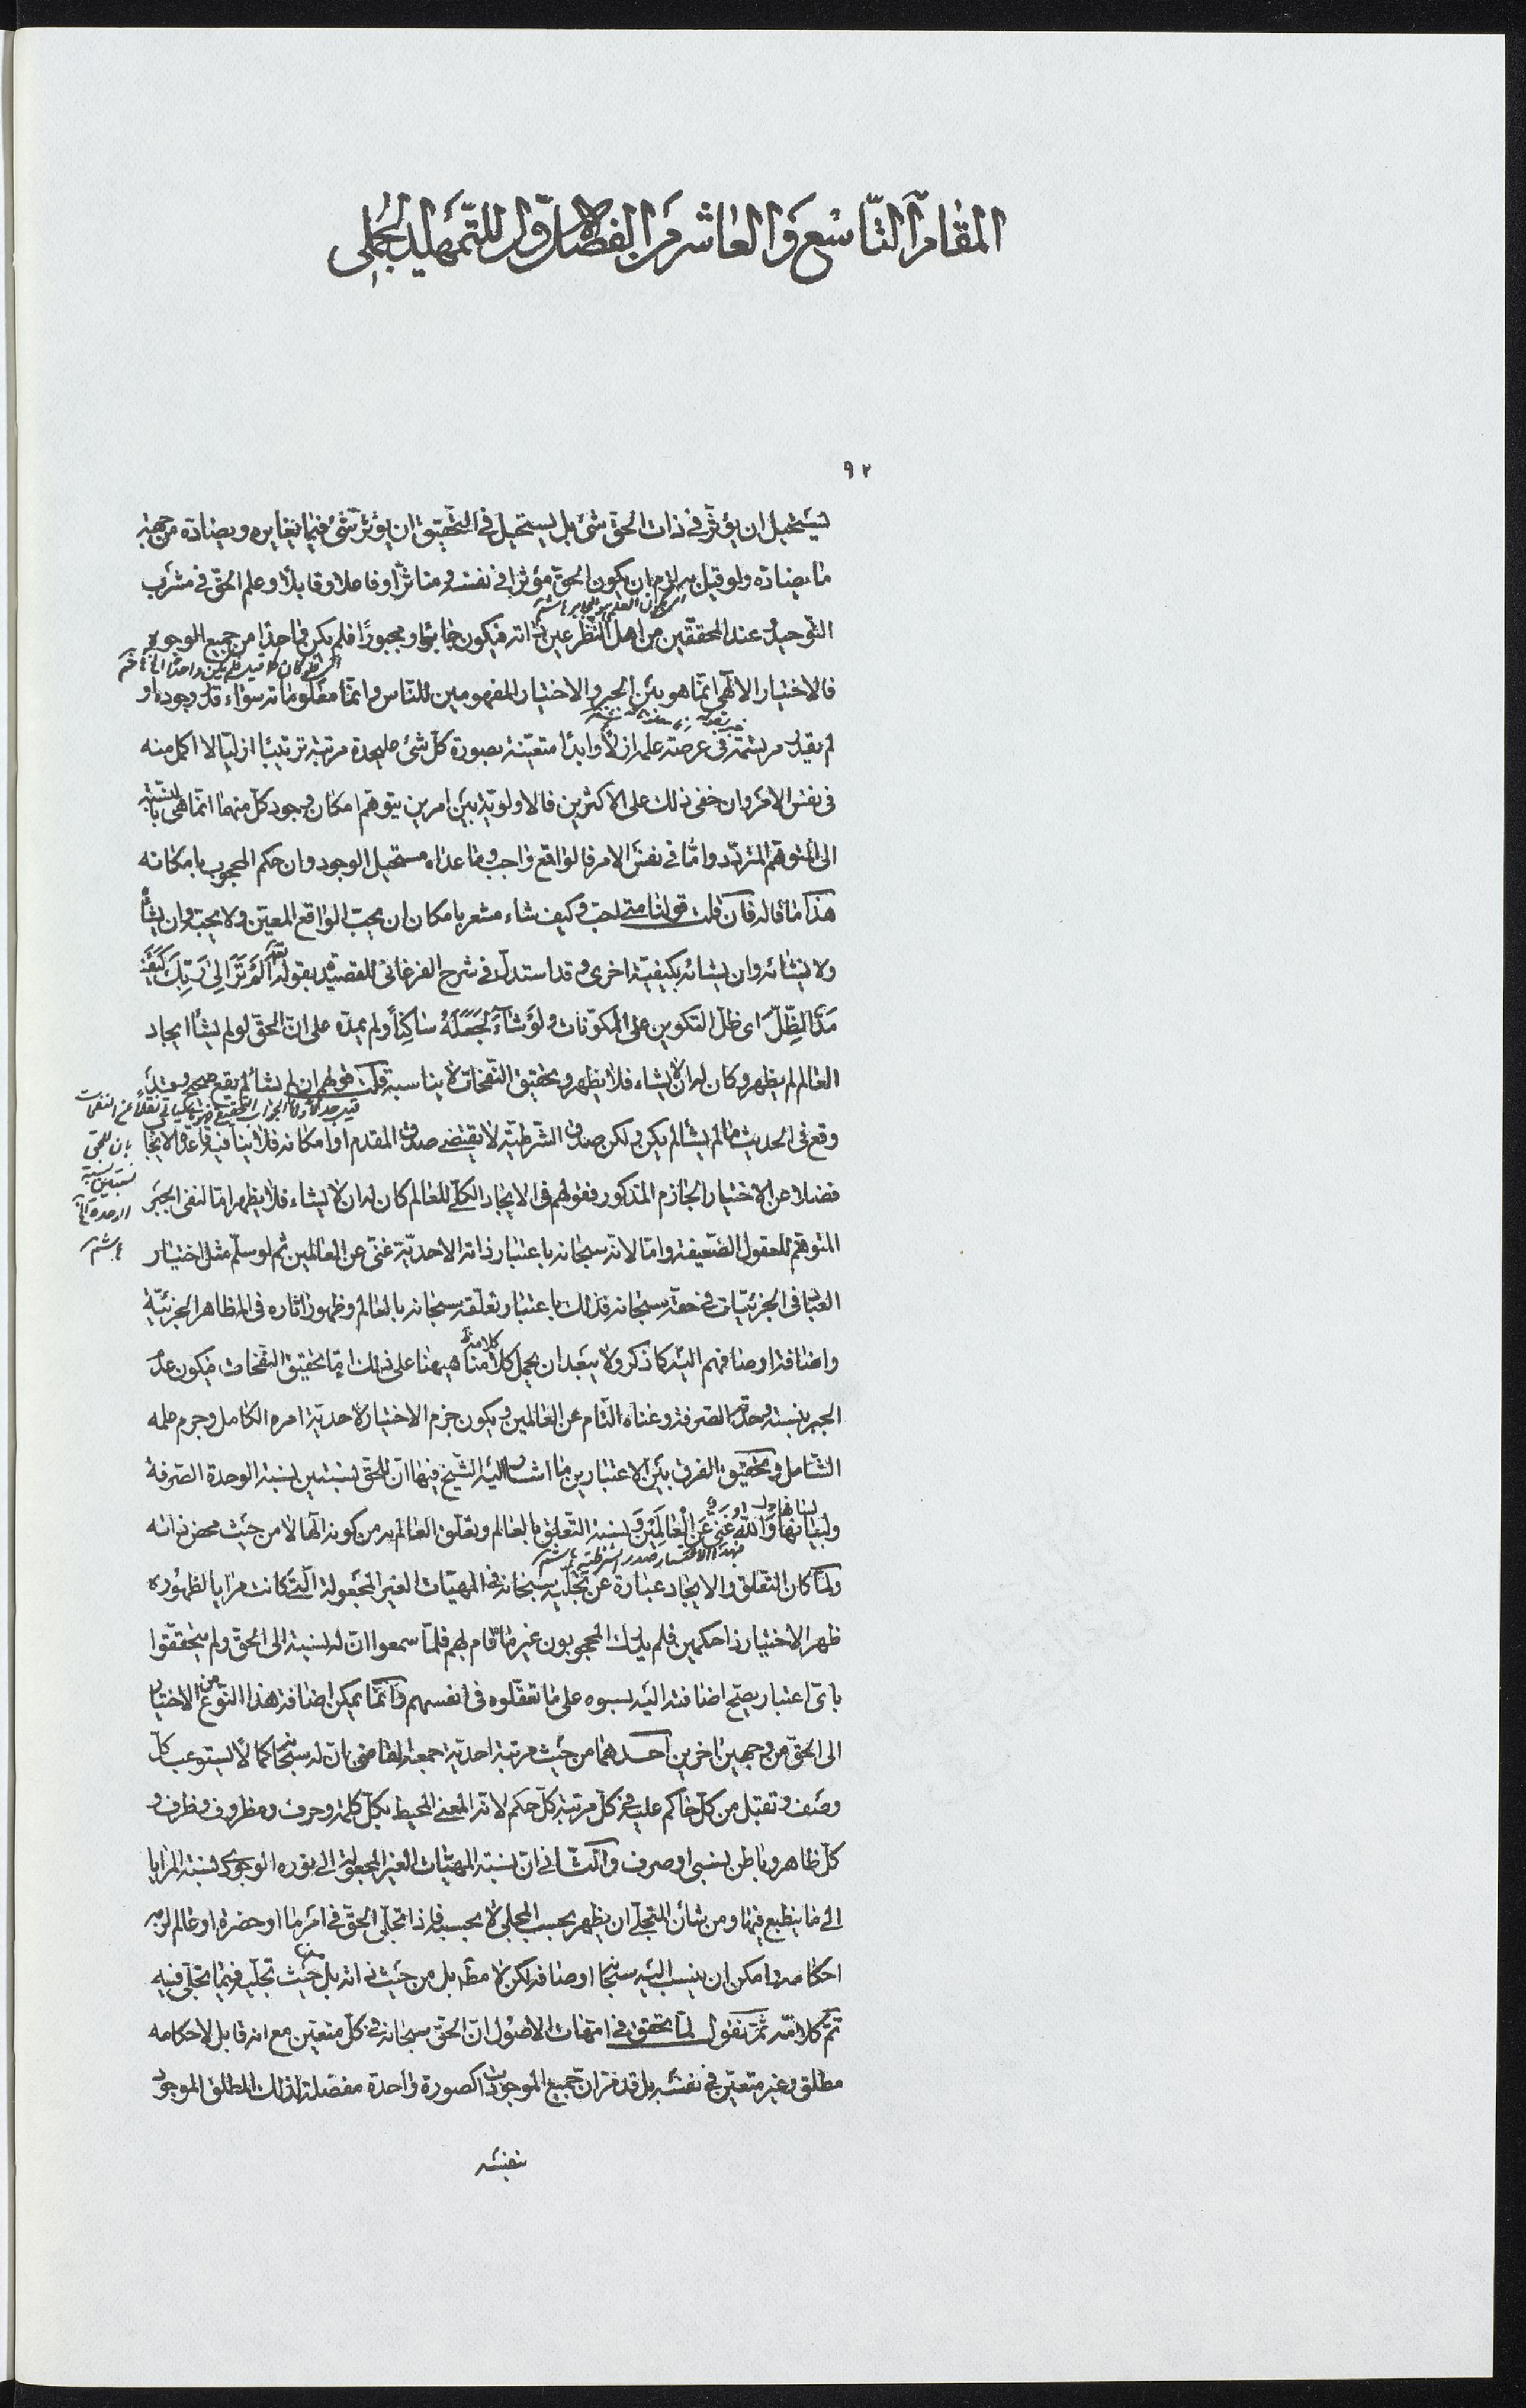 المقام التاسع والعاشر من الفصل الاول للتمهيد الجملى
٩٢
ليستحيل ان يؤثر فى ذات الحق شئ بل يستحيل فى التحقيق ان يؤثر شئ فيما يغايره ويضاده من جهة
ما يضاده ولو قيل به لزم ان يكون الحق مؤثرا فى نفسه ومتاثرا وفاعلا وقابلا وعلم الحق فى مشرب
التوحيد وعند المحققين من اهل النظر عين ذاته فيكون جابرا ومجبورا فلم يكن واحدا من جميع الوجوه
فالاختيار الالهى انما هو بين الجبر والاختيار المفهومين للناس وانما معلوماته سواء قدر وجوده او
لم يقدر مرتسمة فى عرصة علمه ازلا وابدا متعينة بصورة كل شئ عليحدة مرتبة ترتيبا ازليا لا اكمل منه
فى نفس الامر وان خفى ذلك على الاكثرين فالاولوية بين امرين يتوهم امكان وجود كل منهما انما هى بالنسبة
الى المتوهم المتردد واما فى نفس الامر فالواقع واجب وما عداه مستحيل الوجود وان حكم المحجوب بامكانه
هذا ما قاله فان قلت قولنا متى احب وكيف شاء مشعر بامكان ان يحب الواقع المعين ولا يحبه وان يشأ
ولا يشائه وان يشائه بكيفية اخرى وقد استدل فى شرح الفرغانى للقصيدة بقوله تعالى اَلَمْ تَرَ اِلىٰ رَبِّكَ كَيْفَ
مَدَّ الظِّلَّ اى ظل التكوين على المكونات وَلَوْ شَاءَ لَجَعَلَهُ سَاكِناً ولم يمده على ان الحق لو لم يشأ ايجاد
العالم لم يظهر وكان له ان لا يشاء فلا يظهر وتحقيق النفحات لا يناسبه قلت قولهم ان لم يشأ لم يقع صحيح وقد
وقع فى الحديث ما لم يشأ لم يكن ولكن صدق الشرطية لا يقتضى صدق المقدم او امكانه فلا ينافيه قاعدة الايجاب
فضلا عن الاختيار الجازم المذكور فقولهم فى الايجاد الكلى للعالم كان له ان لا يشاء فلا يظهر اما لنفى الجبر
المتوهم للعقول الضعيفة واما لانه سبحانه باعتبار ذاته الاحدية غنى عن العالمين ثم لو سلم مثل اختيار
العباد فى الجزئيات فى حقه سبحانه فذلك باعتبار تعلقه سبحانه بالعالم وظهور اثاره فى المظاهر الجزئية
واضافة اوصافهم اليه كما ذكر ولا يبعد ان يحمل كلامنا هيهنا على ذلك اما تحقيق النفحات فيكون عدم
الجبر بنسبة وحدته الصرفة وغناه التام عن العالمين ويكون جزم الاختيار لاحدية امره الكامل وجزم علمه
الشامل وتحقيق الفرق بين الاعتبارين ما اشار اليه الشيخ فيها ان للحق نسبتين نسبة الوحدة الصرفة
ولسانها وَاللهُ غَنِىٌّ عَنِ الْعَالَمِيْنَ ونسبة التعلق بالعالم وتعلق العالم به من كونه الها لا من حيث محض ذاته
ولما كان التعلق والايجاد عبارة عن تجليه سبحانه فى المهيات الغير المجعولة التى كانت مرايا لظهوره
ظهر الاختيار ذا حكمين فلم يدرك المحجوبون غير ما قام بهم فلما سمعوا ان له نسبة الى الحق ولم يتحققوا
باى اعتبار يصح اضافته اليه نسبوه على ما تعقلوه فى انفسهم وانما يمكن اضافة هذا النوع من الاختيار
الى الحق من وجهين اخرين احدهما من حيث مرتبة احدية جمعه القاضى بان له سبحانه كمالا يستوعب كل
وصف وتقبل من كل حاكم عليه فى كل مرتبة كل حكم لانه المعنى المحيط بكل كلمة وحرف ومظروف وظرف و
كل ظاهر وباطن نسبى او صرف والثانى ان نسبة المهيات الغير المجعولة الى نوره الوجودى نسبة المرايا
الى ما ينطبع فيها ومن شأن التجلى ان يظهر بحسب المجلى لا بحسبه فاذا تجلى الحق فى امر ما او حضرة او عالم لزمه
احكامه وامكن ان ينسب اليه سبحانه اوصافه لكن لا مطلقا بل من حيث ذاته بل من حيث تجليه فيما تجلى فيه
تم كلامه ثم نقول لما تحقق فى امهات الاصول ان الحق سبحانه فى كل متعين مع انه قابل لاحكامه
مطلق وغير متعين فى نفسه بل قد مر ان جميع الموجودات كصورة واحدة مفصلة لذلك المطلق الموجود
بنفسه